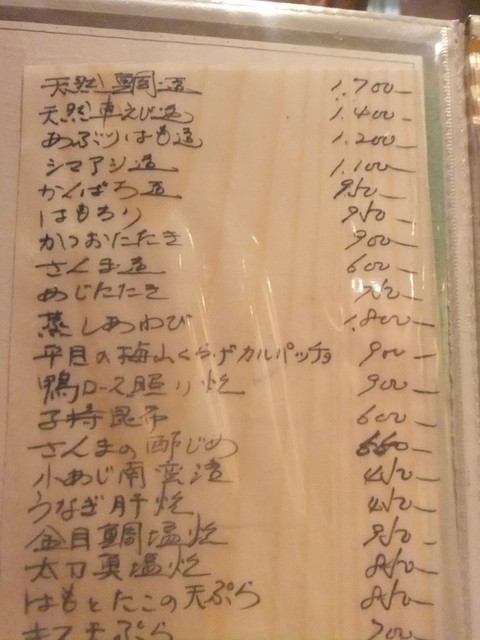 天然鯛造 1.700-
天然車えび造 1.400-
あぶりはも造 1.200-
シマアジ造 1.100-
かんぱち造 950-
はもちり 950-
かつおたたき 900-
さんま造 600-
めじたたき
蒸しあわび 1.800-
平目の梅山くらげカルパッチョ 900-
鴨ロース照り焼 900-
子持昆布 600-
さんまの酢じめ
小あじ南蛮漬 450-
うなぎ肝焼 450-
金目鯛塩焼 950-
太刀魚塩焼 850-
はもとたこの天ぷら 850-
天ぷら 700-